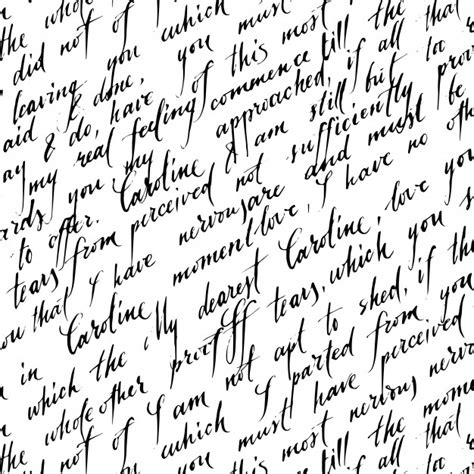 the whole
did not of you which must
leaving you you this most the of that
aid & done, have of
ay & do, feeling commence till the
my real approached, if all too
ards you my I am still but prov
to offer. Caroline, not sufficiently be
tears from perceived and must
ou that I have nervous are I have no othe
Caroline moment love, Caroline, love you
in which the My dearest tears, which you s
the whole other proof off to shed, if the
did not of I am not apt from you
you which I parted perceived
must have nervous
this most
till the moment
the of that